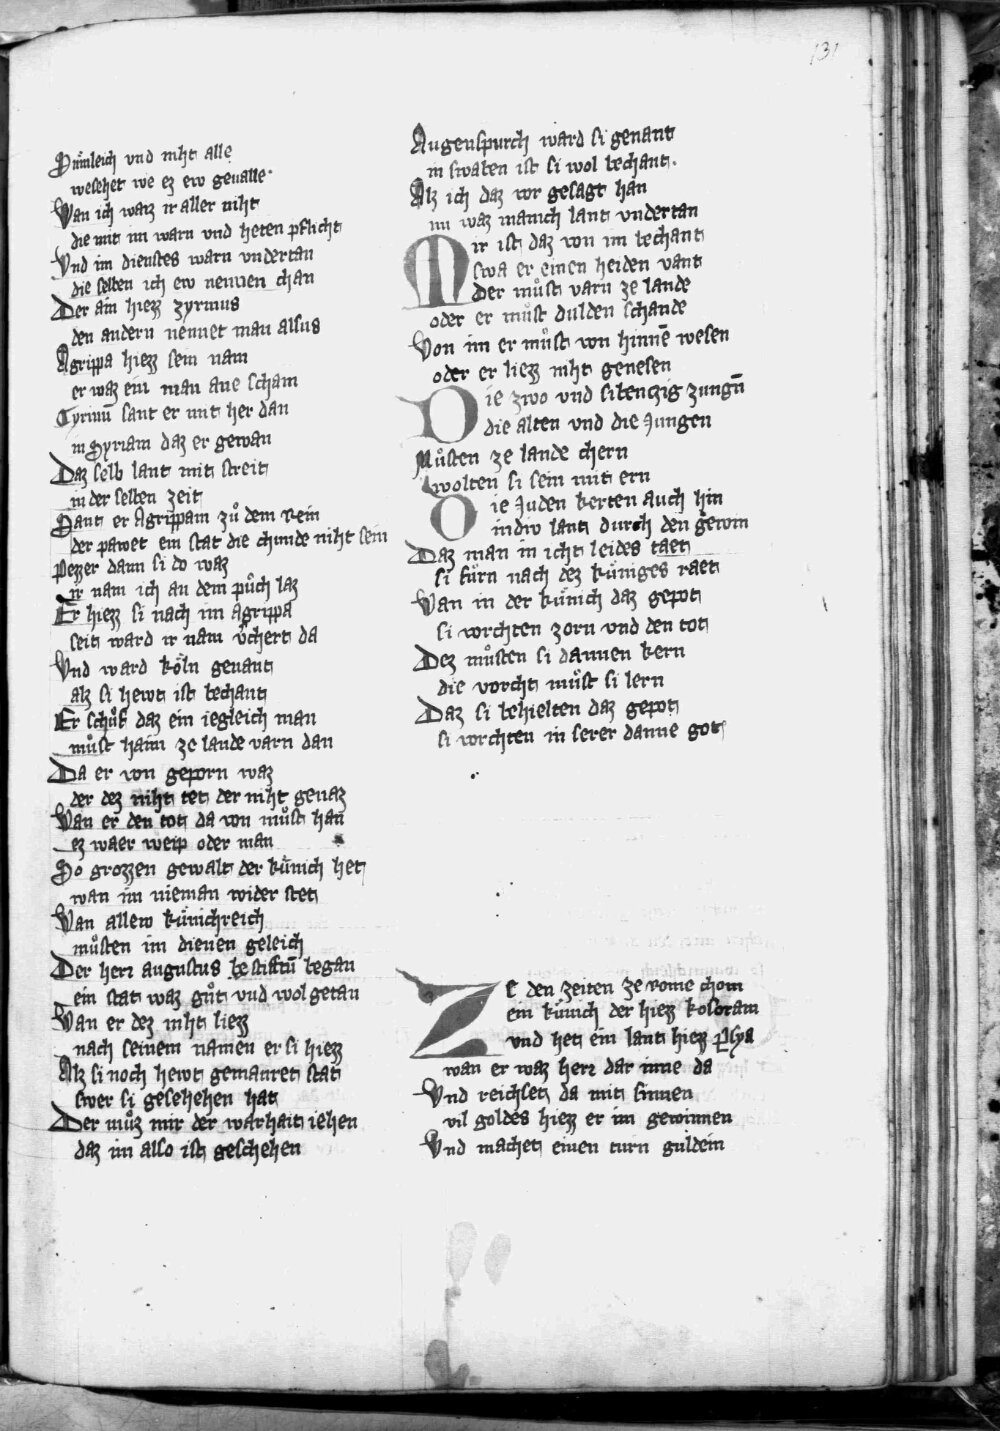 131
Sumleich vnd niht alle
wesehet we ez ew geualle.
Wan ich waiz ir aller niht
die mit im warn vnd heten pflicht
Vnd im dienstes warn vndertan
die selben ich ew nennen chan
Der ain hiezz zyrinus
den andern nennet man alsus
Agrippa hiezz sein nam
er waz ein man ane scham
Cyrinū sant er mit her dan
in Syriam daz er gewan
Daz selb lant mit streit
in der selben zeit
Sant er Agrippam zuͦ dem Rein
der pawet ein stat die chunde niht sein
Pezzer dann si do waz
ir nam ich an dem puͦch laz
Er hiezz si nach im Agrippa
seit ward ir nam v̈chert da
Vnd ward koͤln genant
alz si hewt ist bechant
Er schuͦf daz ein iegleich man
muͦst haim ze lande varn dan
Da er von geporn waz
der dez niht tet der niht genaz
Wan er den tot da von muͦst han
ez waer weip oder man
So grozzen gewalt der kuͤnich het
wan im nieman wider stet
Wan allew kuͤnichreich
muͦsten im dienen geleich
Der herr augustus bestifftū began
ein stat waz guͦt vnd wol getan
Wan er dez niht liezz
nach seinem namen er si hiezz
Alz si noch hewt gemauret stat
swer si gesehehen hat
Der muͦz mir der warhait iehen
daz im also ist geschehen
Augenspurch ward si genant
in swaben ist si wol bechant.
Alz ich daz vor gesagt han
im waz manich lant vndertan
Mir ist daz von im bechant
swa er einen heiden vant
Der muͦst varn ze lande
oder er muͦst dulden schande
Von im er muͦst von hinnē wesen
oder er liezz niht genesen
Die zwo vnd sibenczig zungn̄
die alten vnd die Jungen
Muͦsten ze lande chern
wolten si sein mit ern
Die Juden kerten auch hin
indiv lant durch den gewin
Daz man in icht leides taet
si fuͤrn nach dez kuͤniges raet
Wan in der kuͤnich daz gepot
si vorchten zorn vnd den tot
Dez muͦsten si dannen kern
die vorcht muͦst si lern
Daz si behielten daz gepot
si vorchten in serer danne got
Ze den zeiten ze rome chom
ein kuͤnich der hiezz kosdram
vnd het ein lant hiezz p̄sya
wan er waz herr dar inne da
Vnd reichset da mit sinnen
vil goldes hiezz er im gewinnen
Vnd machet einen turn guldein